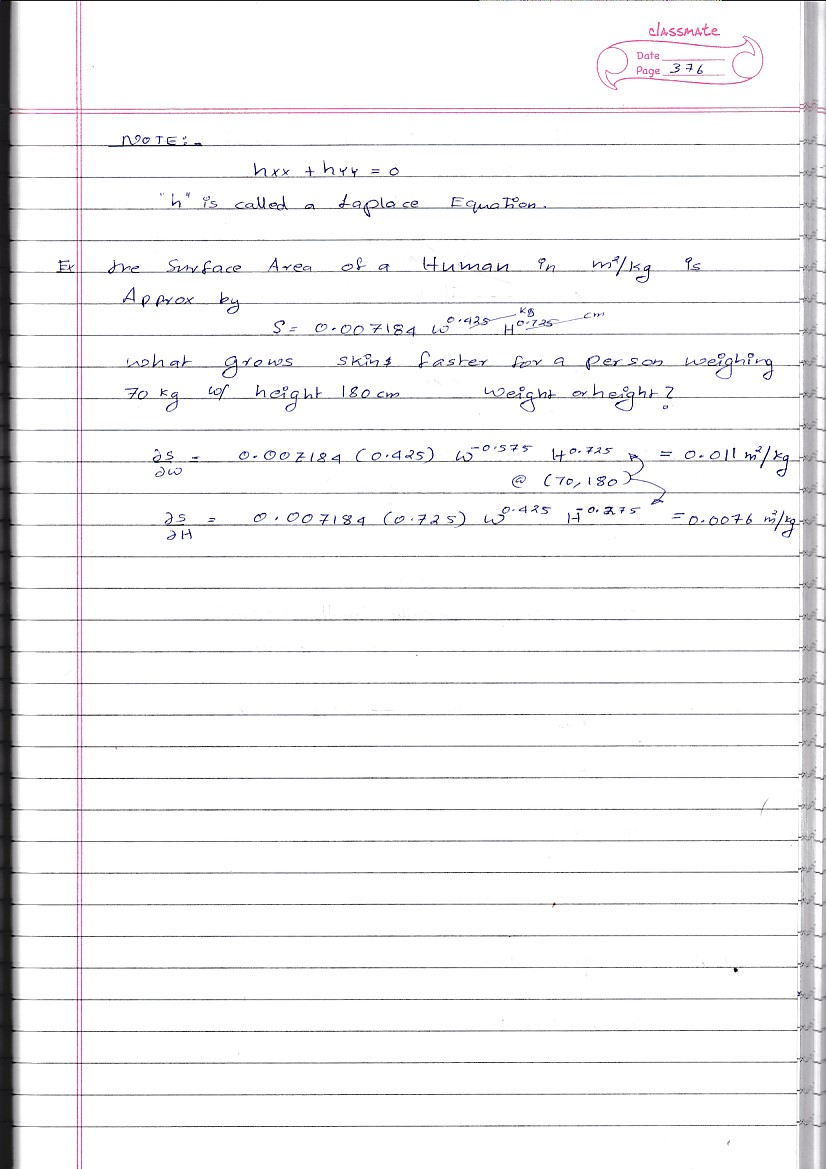 classmate
Date
Page 376
NOTE:-
hxx + hyy = 0
"h" is called a Laplace Equation.
Ex The Surface Area of a Human in m²/kg is
Approx by
S = 0.007184 W^0.425 H^0.725 kg cm
what grows skins faster for a person weighing
70 kg w/ height 180 cm weight or height?
∂S/∂W = 0.007184 (0.425) W^-0.575 H^0.725 = 0.011 m²/kg
@ (70, 180)
∂S/∂H = 0.007184 (0.725) W^0.425 H^-0.275 = 0.0076 m²/kg